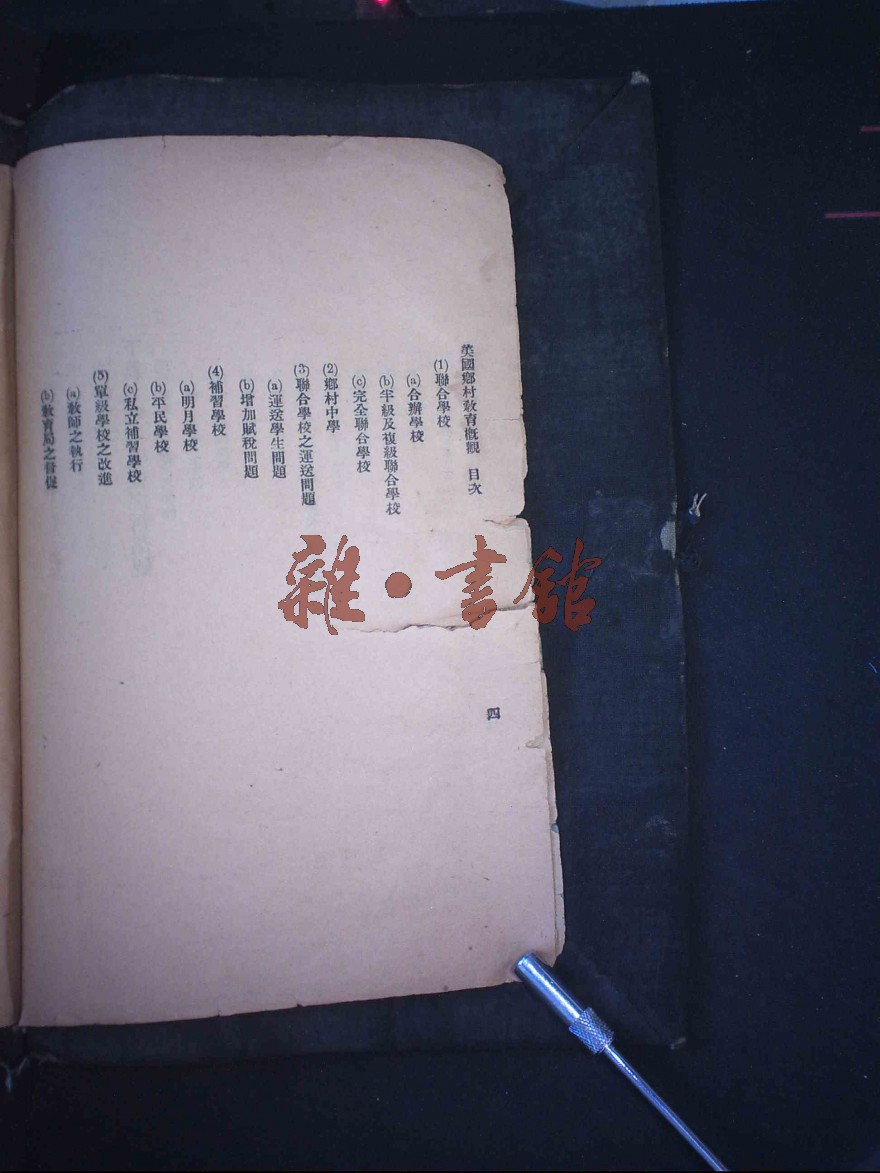 英國鄉村敎育槪觀 目次 四
(1)聯合學校
(a)合辦學校
(b)半級及複級聯合學校
(c)完全聯合學校
(2)鄉村中學
(3)聯合學校之運送問題
(a)運送學生問題
(b)增加賦稅問題
(4)補習學校
(a)明月學校
(b)平民學校
(c)私立補習學校
(5)單級學校之改進
(a)敎師之執行
(b)敎育局之督促
雜·書館